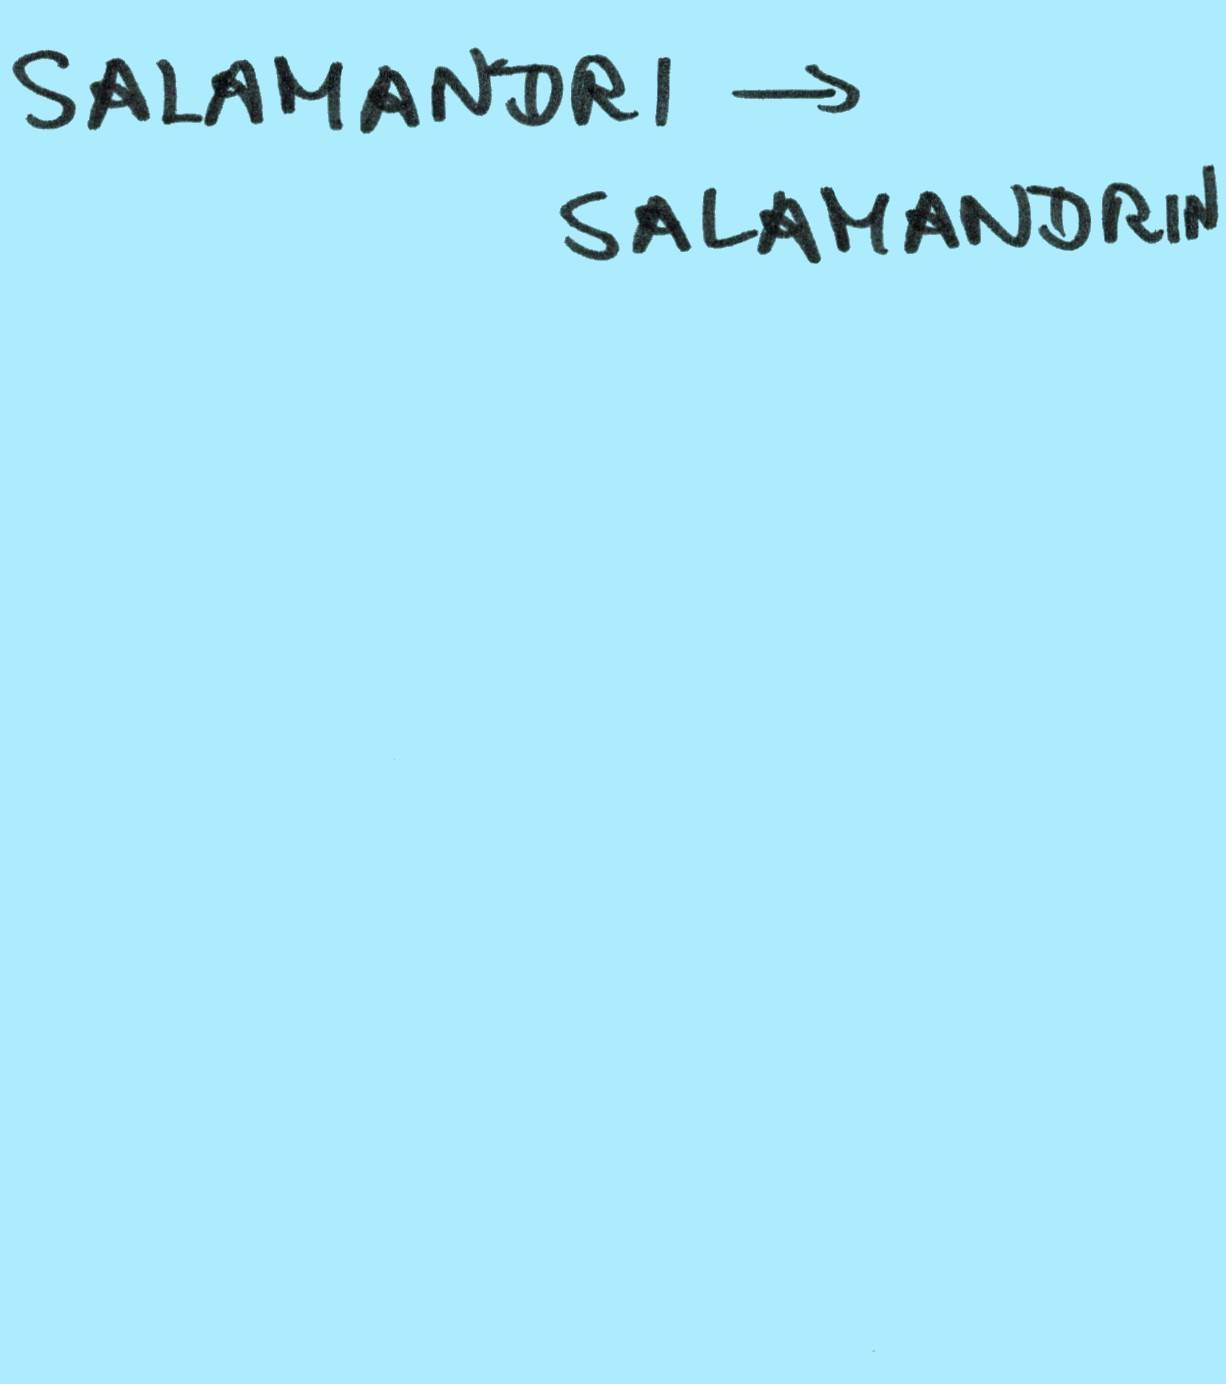 SALAMANDRI →
SALAMANDRIN